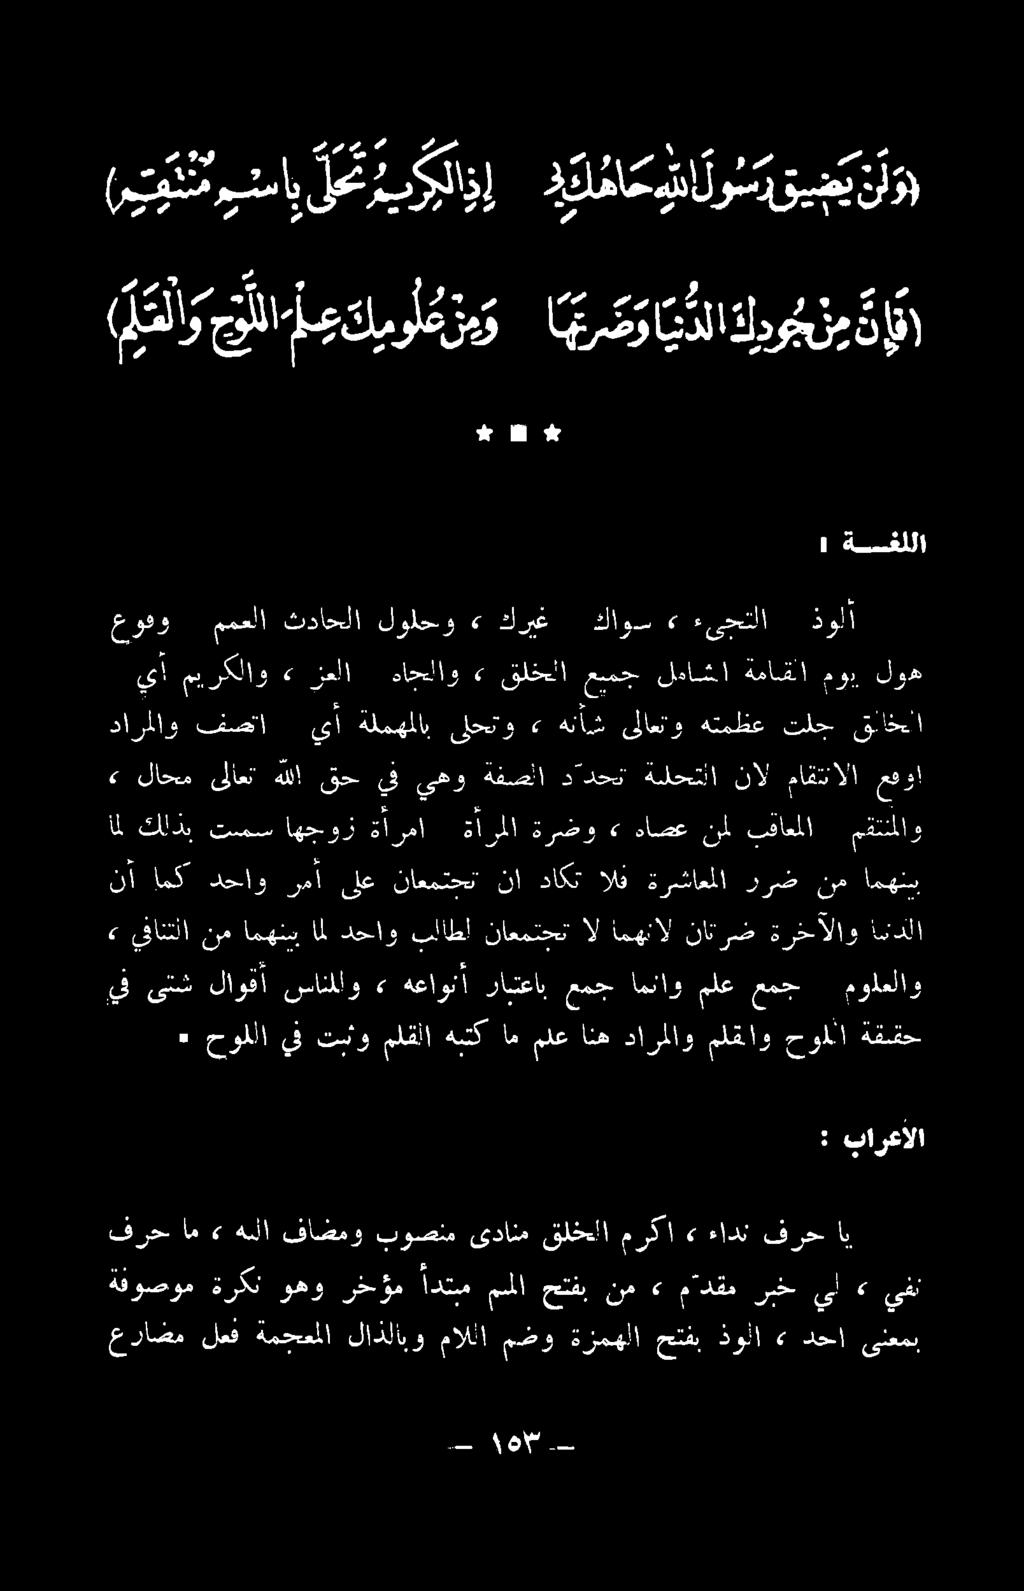 (وَلَنْ يَضِيقَ رَسُولَ اللهِ جَاهُكَ بِي إِذِ الْكَرِيمُ تَحَلَّى بِاسْمِ مُنْتَقِمِ)
(فَإِنَّ مِنْ جُودِكَ الدُّنْيَا وَضَرَّتَهَا وَمِنْ عُلُومِكَ عِلْمَ اللَّوْحِ وَالْقَلَمِ)
★ ■ ★
اللغـــة :
ألوذ التجىء ، سواك غيرك ، وحلول الحادث العمم وقوع
هول يوم القيامة الشامل جميع الخلق ، والجاه العز ، والكريم أي
الخالق جلت عظمته وتعالى شأنه ، وتحلى بالمهملة أي اتصف والمراد
أوقع الانتقام لأن التحلية تحدد الصفة وهي في حق الله تعالى محال ،
والمنتقم المعاقب لمن عصاه ، وضرة المرأة امرأة زوجها سميت بذلك لما
بينهما من ضرر المعاشرة فلا تكاد ان تجتمعان على أمر واحد كما أن
الدنيا والآخرة ضرتان لانهما لا تجتمعان لطالب واحد لما بينهما من التنافي ،
والعلوم جمع علم وانما جمع باعتبار أنواعه ، وللناس أقوال شتى في
حقيقة اللوح والقلم والمراد هنا علم ما كتبه القلم وثبت في اللوح ▪
الأعراب :
يا حرف نداء ، اكرم الخلق منادى منصوب ومضاف اليه ، ما حرف
نفي ، لي خبر مقدّم ، من بفتح الميم مبتدأ مؤخر وهو نكرة موصوفة
بمعنى احد ، الوذ بفتح الهمزة وضم اللام وبالذال المعجمة فعل مضارع
— ١٥٣ —